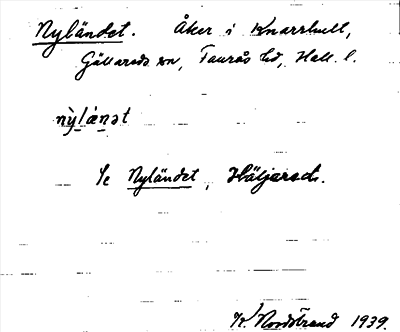 Nyländet. Åker i Knarrhult,
Gällareds sn, Faurås hd, Hall. l.
nỳlä́nət
Se Nyländet, Häljared.
K. Nordstrand 1939.